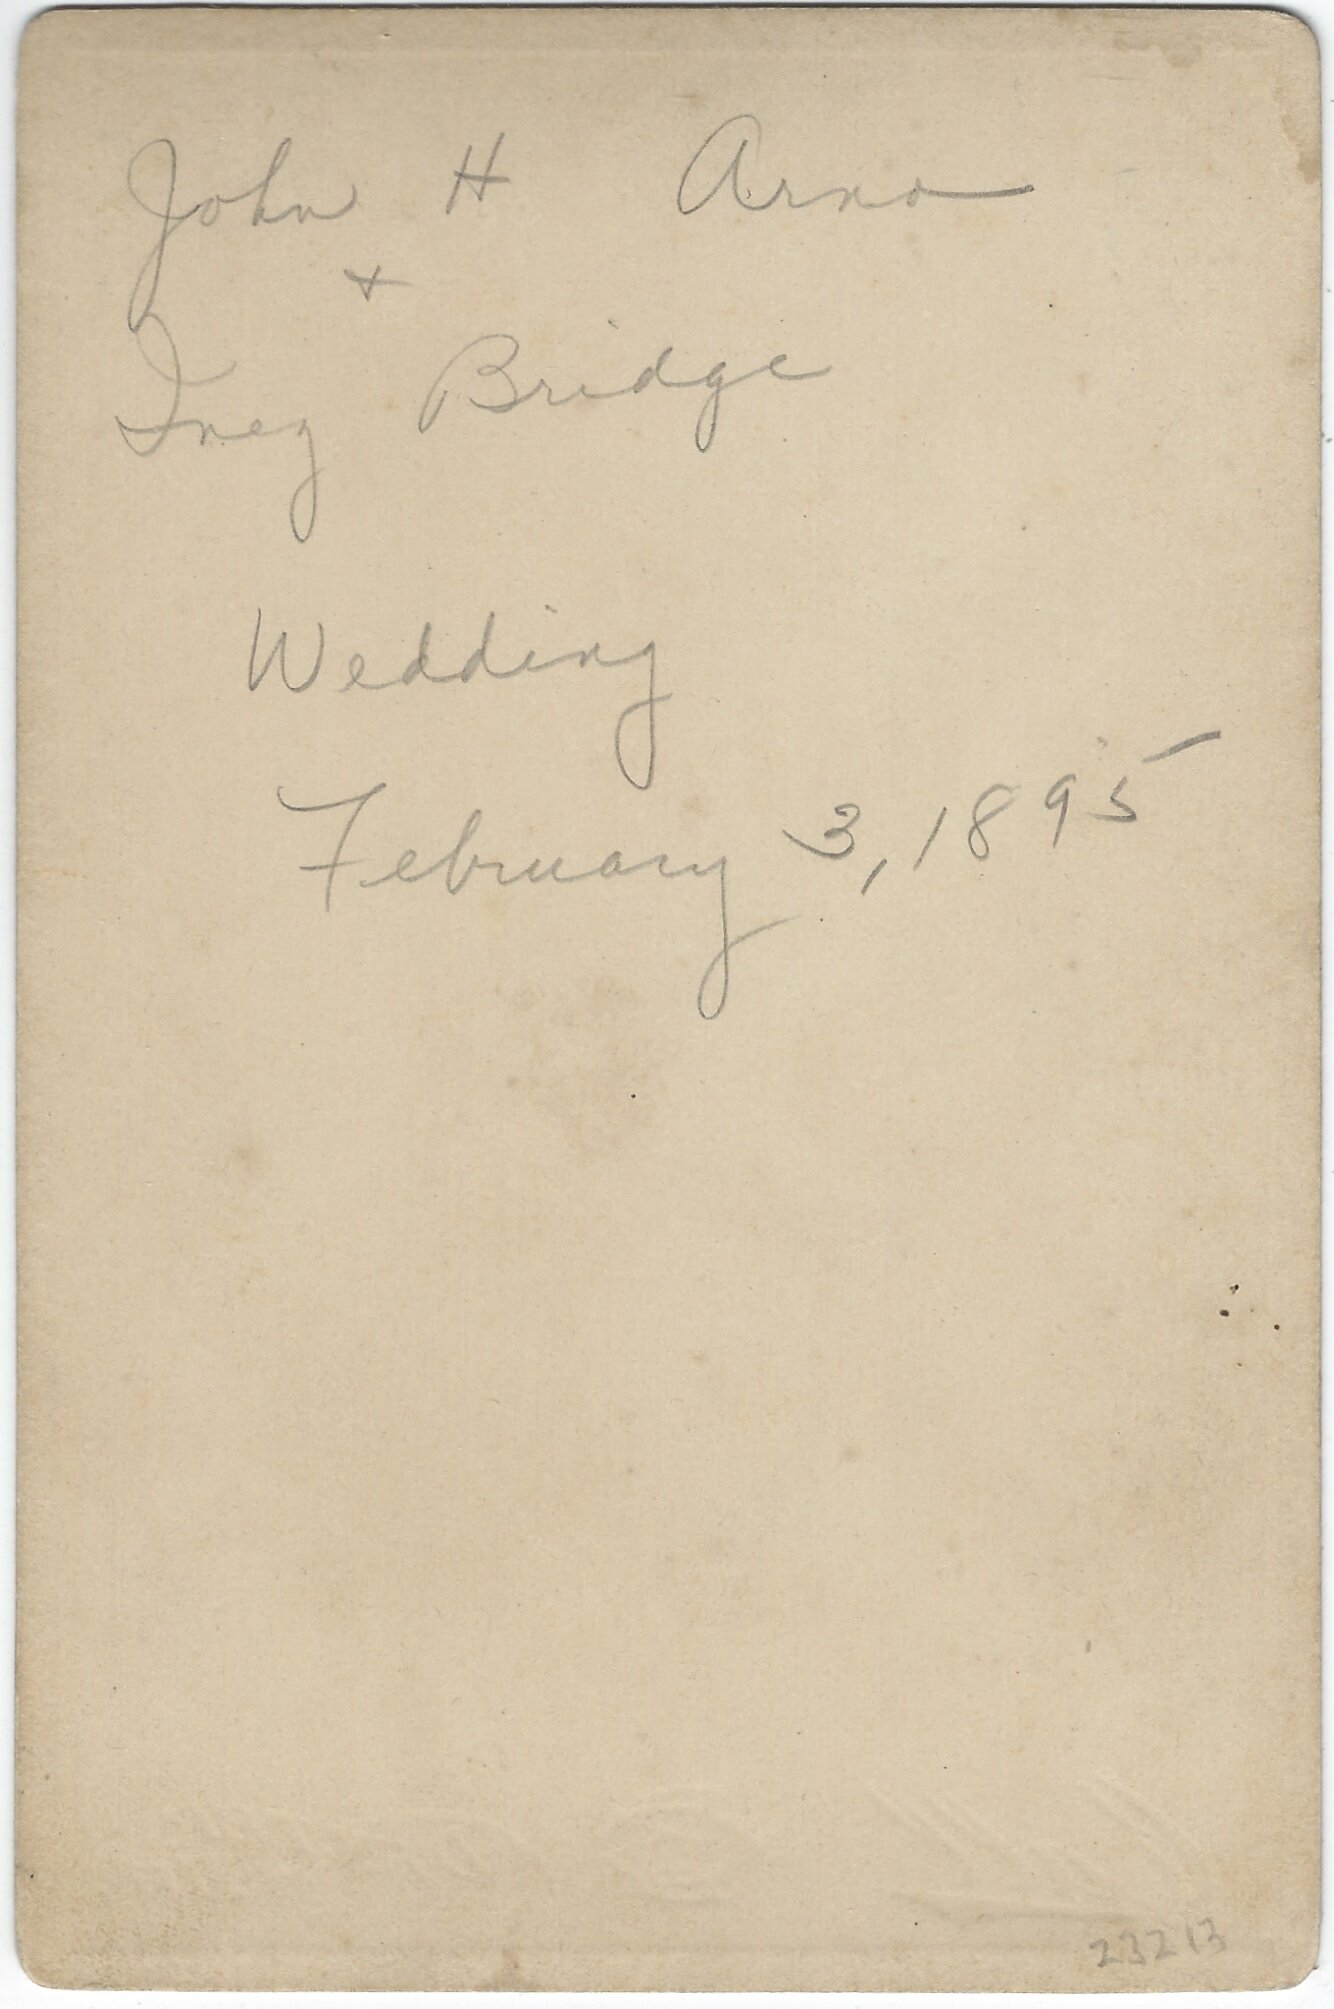 John H Arno
+
Inez Bridge
Wedding
February 3, 1895
23213